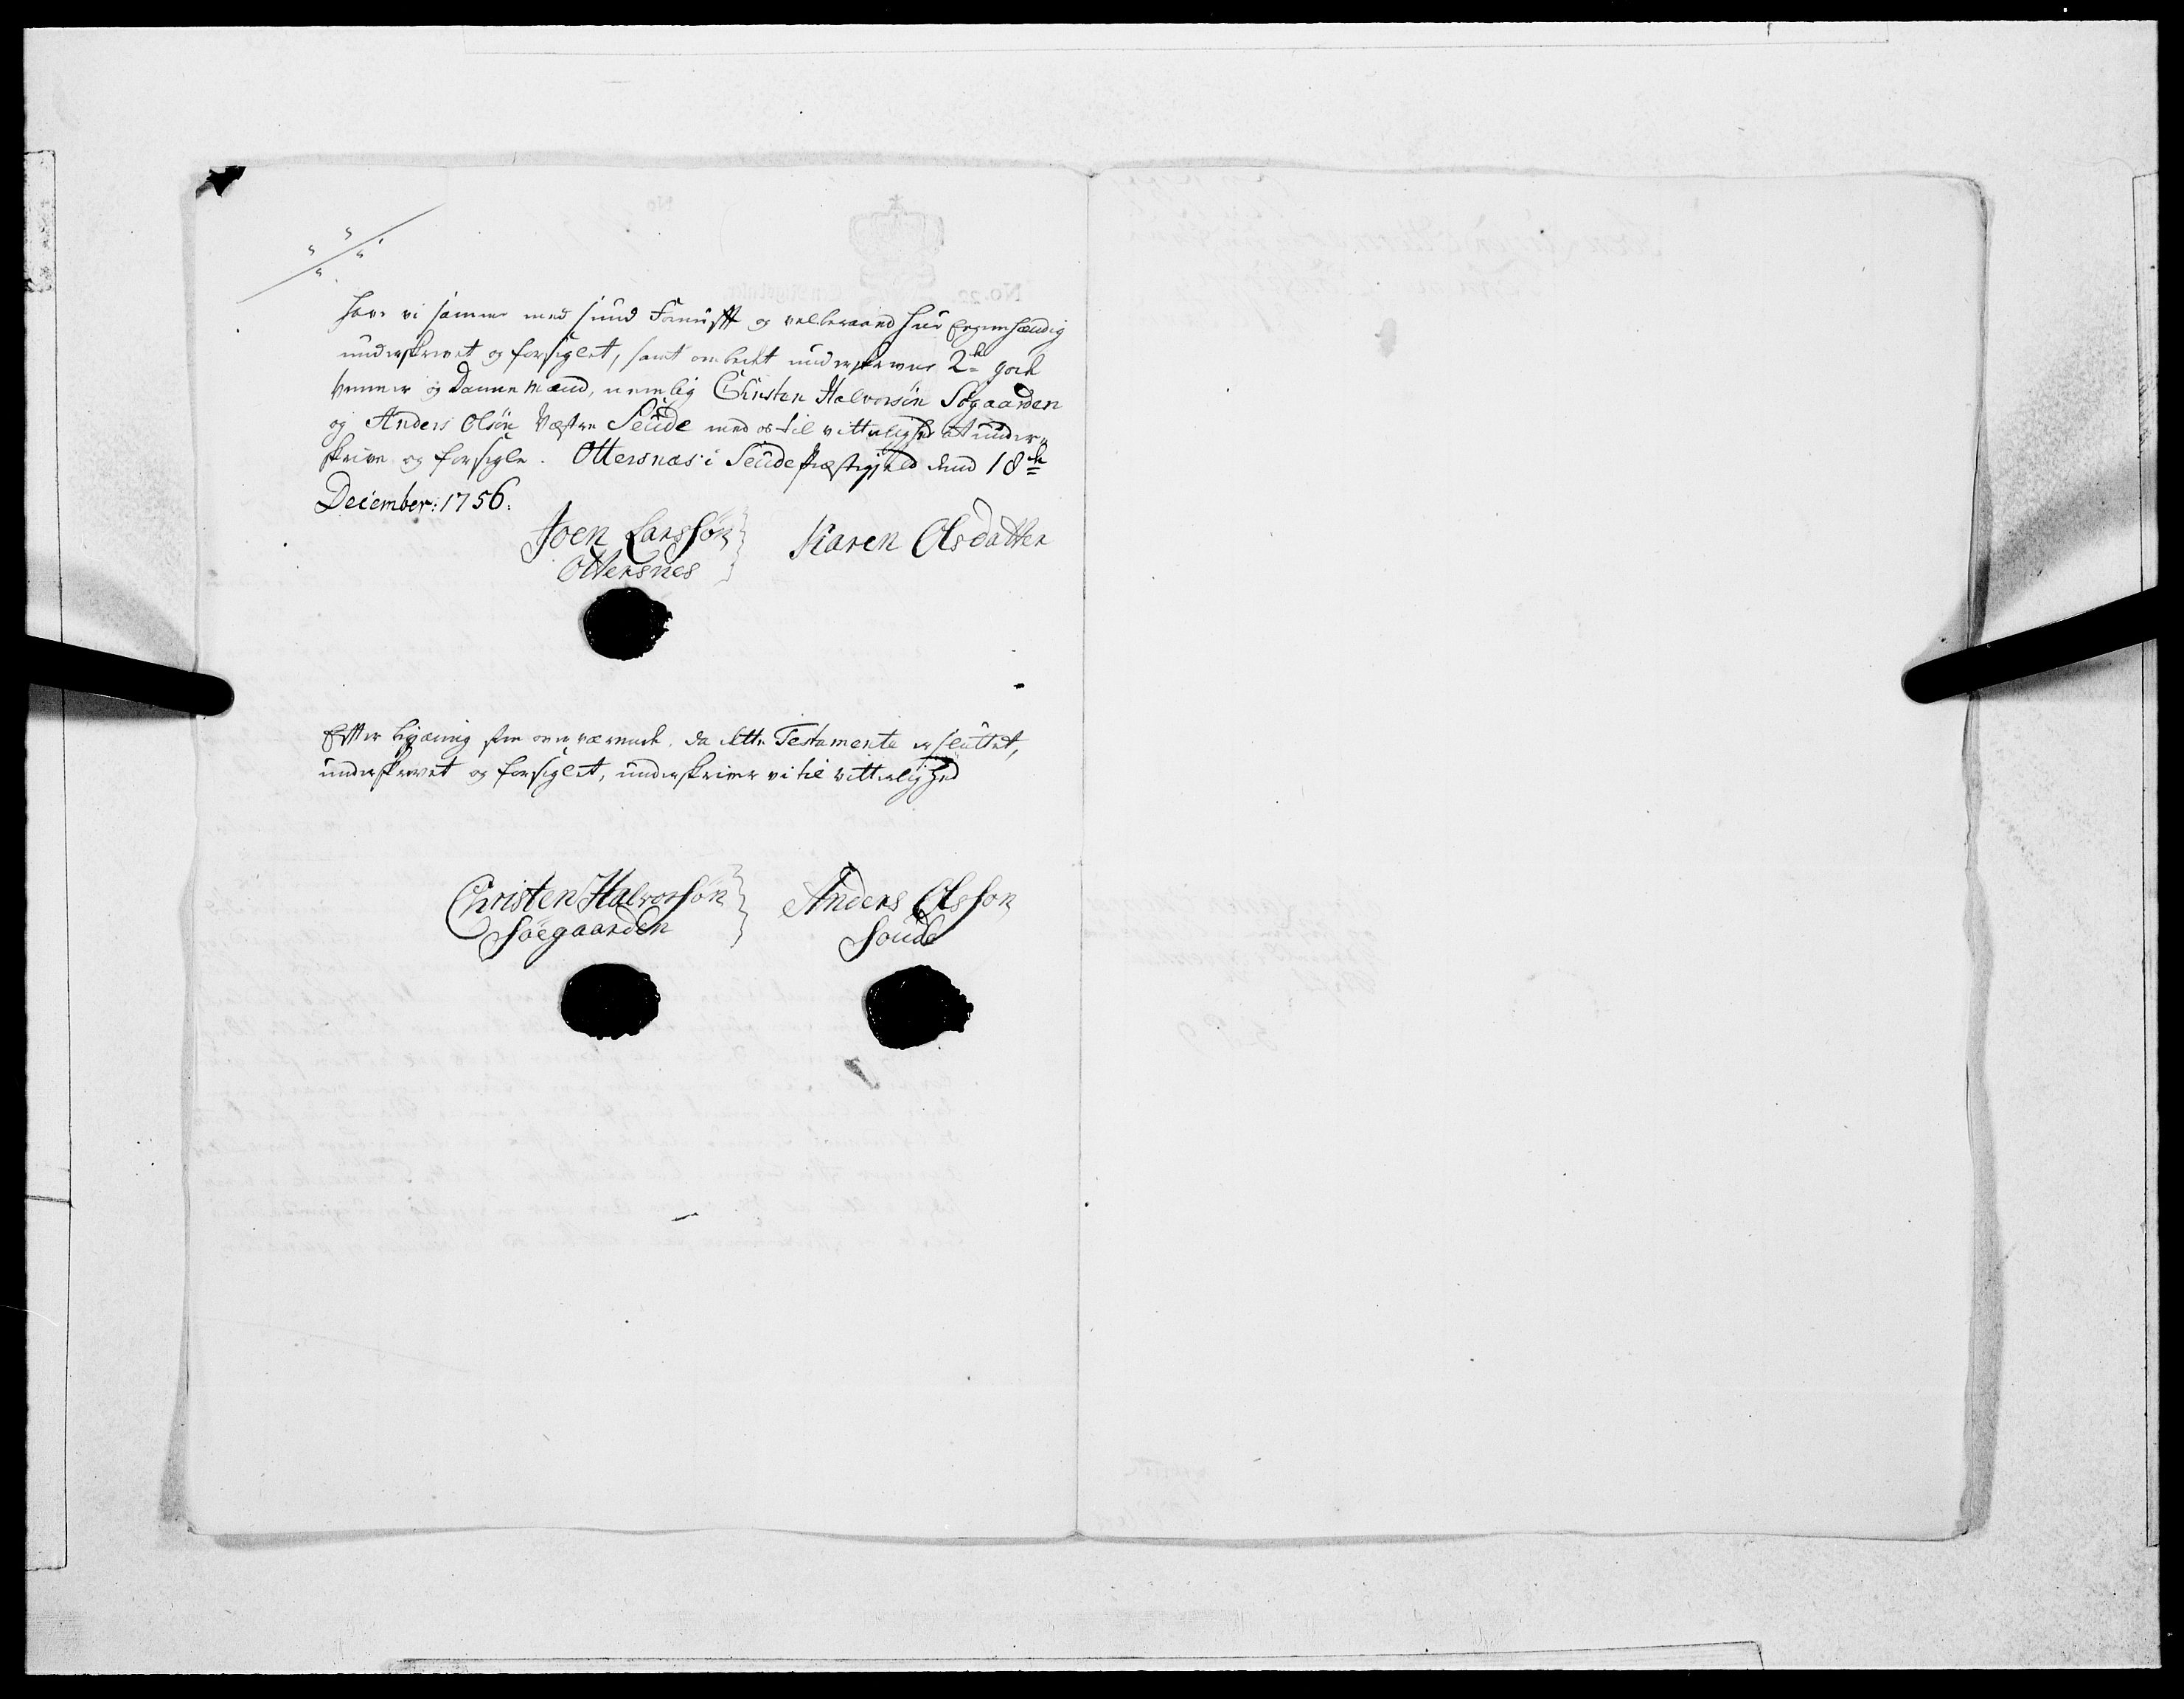 have vi samme med sund Fornufft og velberaand Hue Egenhændig
underskrevet og forsiglet, samt ombedet underskrevne 2de gode
Venner og Dannemænd, nemlig Christen Halvorsön Søgaarden
og Anders Olsön Væstre Seude med os til vitterlighed at under-
skrive og forsigle. Ottersnæs i Seude Præstegield dend 18de
December: 1756.
Joen Larssøn Karen Olsdatter
Ottersnes
Efter begiæring som overværende, da dette Testamente er sluttet,
underskrevet og forsiglet, underskriver vi til vitterlighed
Christen Halvorssøn Anders Olsson
Søegaarden Soude